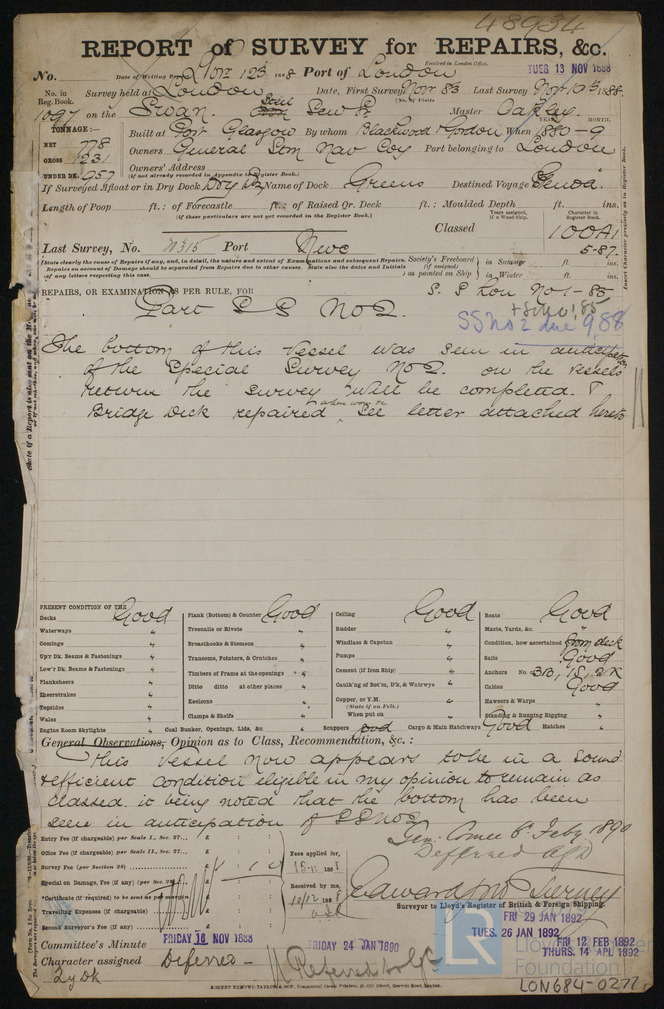 48934
REPORT of SURVEY for REPAIRS, &c.
Received in London Office,
TUES 13 NOV 1888
No. Date of Writing Report Nov 12 1888 Port of London
No. in Reg. Book. Survey held at London Date, First Survey Nov 8 Last Survey Nov 1888.
(No. of Visits
1097 on the Swan. Steel Scw Sr Master Oakley
TONNAGE:—
YEAR. MONTH.
Built at Port Glasgow By whom Blackwood & Gordon When 1880-9
NET 778
GROSS 1231
UNDER DK. 957
Owners General Stm Nav Coy Port belonging to London
Owners' Address
(if not already recorded in Appendix to Register Book.)
If Surveyed Afloat or in Dry Dock Dry Dk Name of Dock Greens Destined Voyage Genoa.
Length of Poop ft.: of Forecastle ft.: of Raised Qr. Deck ft.: Moulded Depth ft. ins.
(if these particulars are not yet recorded in the Register Book.)
Years assigned, if a Wood Ship.
Character in Register Book.
Classed 100A1
5-87.
Last Survey, No. 31315 Port Newc
Society's Freeboard (if assigned) as painted on Ship in Summer ft. ins.
in Winter ft. ins.
State clearly the cause of Repairs if any, and, in detail, the nature and extent of Examinations and subsequent Repairs.
Repairs on account of Damage should be separated from Repairs due to other causes. State also the dates and Initials
of any letters respecting this case.
REPAIRS, OR EXAMINATION AS PER RULE, FOR
S. S Lon No 1-85
Part S S No 2.
SS No 2 due 9.88
The bottom of this vessel was seen in anticipation
of the Special Survey No 2. on the vessels
return the survey will be completed. &
Bridge Deck repaired where worn See letter attached hereto
PRESENT CONDITION OF THE
Decks Good
Waterways "
Comings "
Up'r Dk. Beams & Fastenings "
Low'r Dk. Beams & Fastenings "
Planksheers "
Sheerstrakes "
Topsides "
Wales "
Engine Room Skylights "
Plank (Bottom) & Counter Good
Treenails or Rivets "
Breasthooks & Stemson "
Transoms, Pointers, & Crutches "
Timbers of Frame at the openings "
Ditto ditto at other places "
Keelsons "
Clamps & Shelfs "
Coal Bunker, Openings, Lids, &c. "
Ceiling Good
Rudder "
Windlass & Capstan "
Pumps "
Cement (if from Ship) "
Caulk'ng of Bot'm, D'k, & Watrwys "
Copper, or Y.M. "
(State if on Felt.)
When put on "
Scuppers good Cargo & Main Hatchways Good
Boats Good
Masts, Yards, &c. "
Condition, how ascertained from deck
Sails Good
Anchors No. 3B, 1S, 2K
Cables Good
Hawsers & Warps "
Standing & Running Rigging "
Hatches "
General Observations, Opinion as to Class, Recommendation, &c.:
This vessel now appears to be in a sound
& efficient condition eligible in my opinion to remain as
classed, it being noted that the bottom has been
seen in anticipation of SS No 2
Feby 1890
Defferred
Entry Fee (if chargeable) per Scale I., Sec. 27... £ : :
Office Fee (if chargeable) per Scale II., Sec. 27... £ : :
Survey Fee (per Section 28) £ 1 : 1 :
Special on Damage, Fee (if any) (per Sec. 28) £ : :
*Certificate (if required) to be sent as per margin
Travelling Expenses (if chargeable) £ : :
Second Surveyor's Fee (if any) £ : :
Fees applied for,
15-11 1888
Received by me,
10/12 1888
Edward Tierney
Surveyor to Lloyd's Register of British & Foreign Shipping.
FRI 29 JAN 1892
TUES. 26 JAN 1892
FRI 12 FEB 1892
THURS. 14 APL 1892
Committee's Minute FRIDAY 16 NOV 1888 FRIDAY 24 JAN 1890
Character assigned Deferred —
LR Lloyd's Register Foundation
LON684-0277